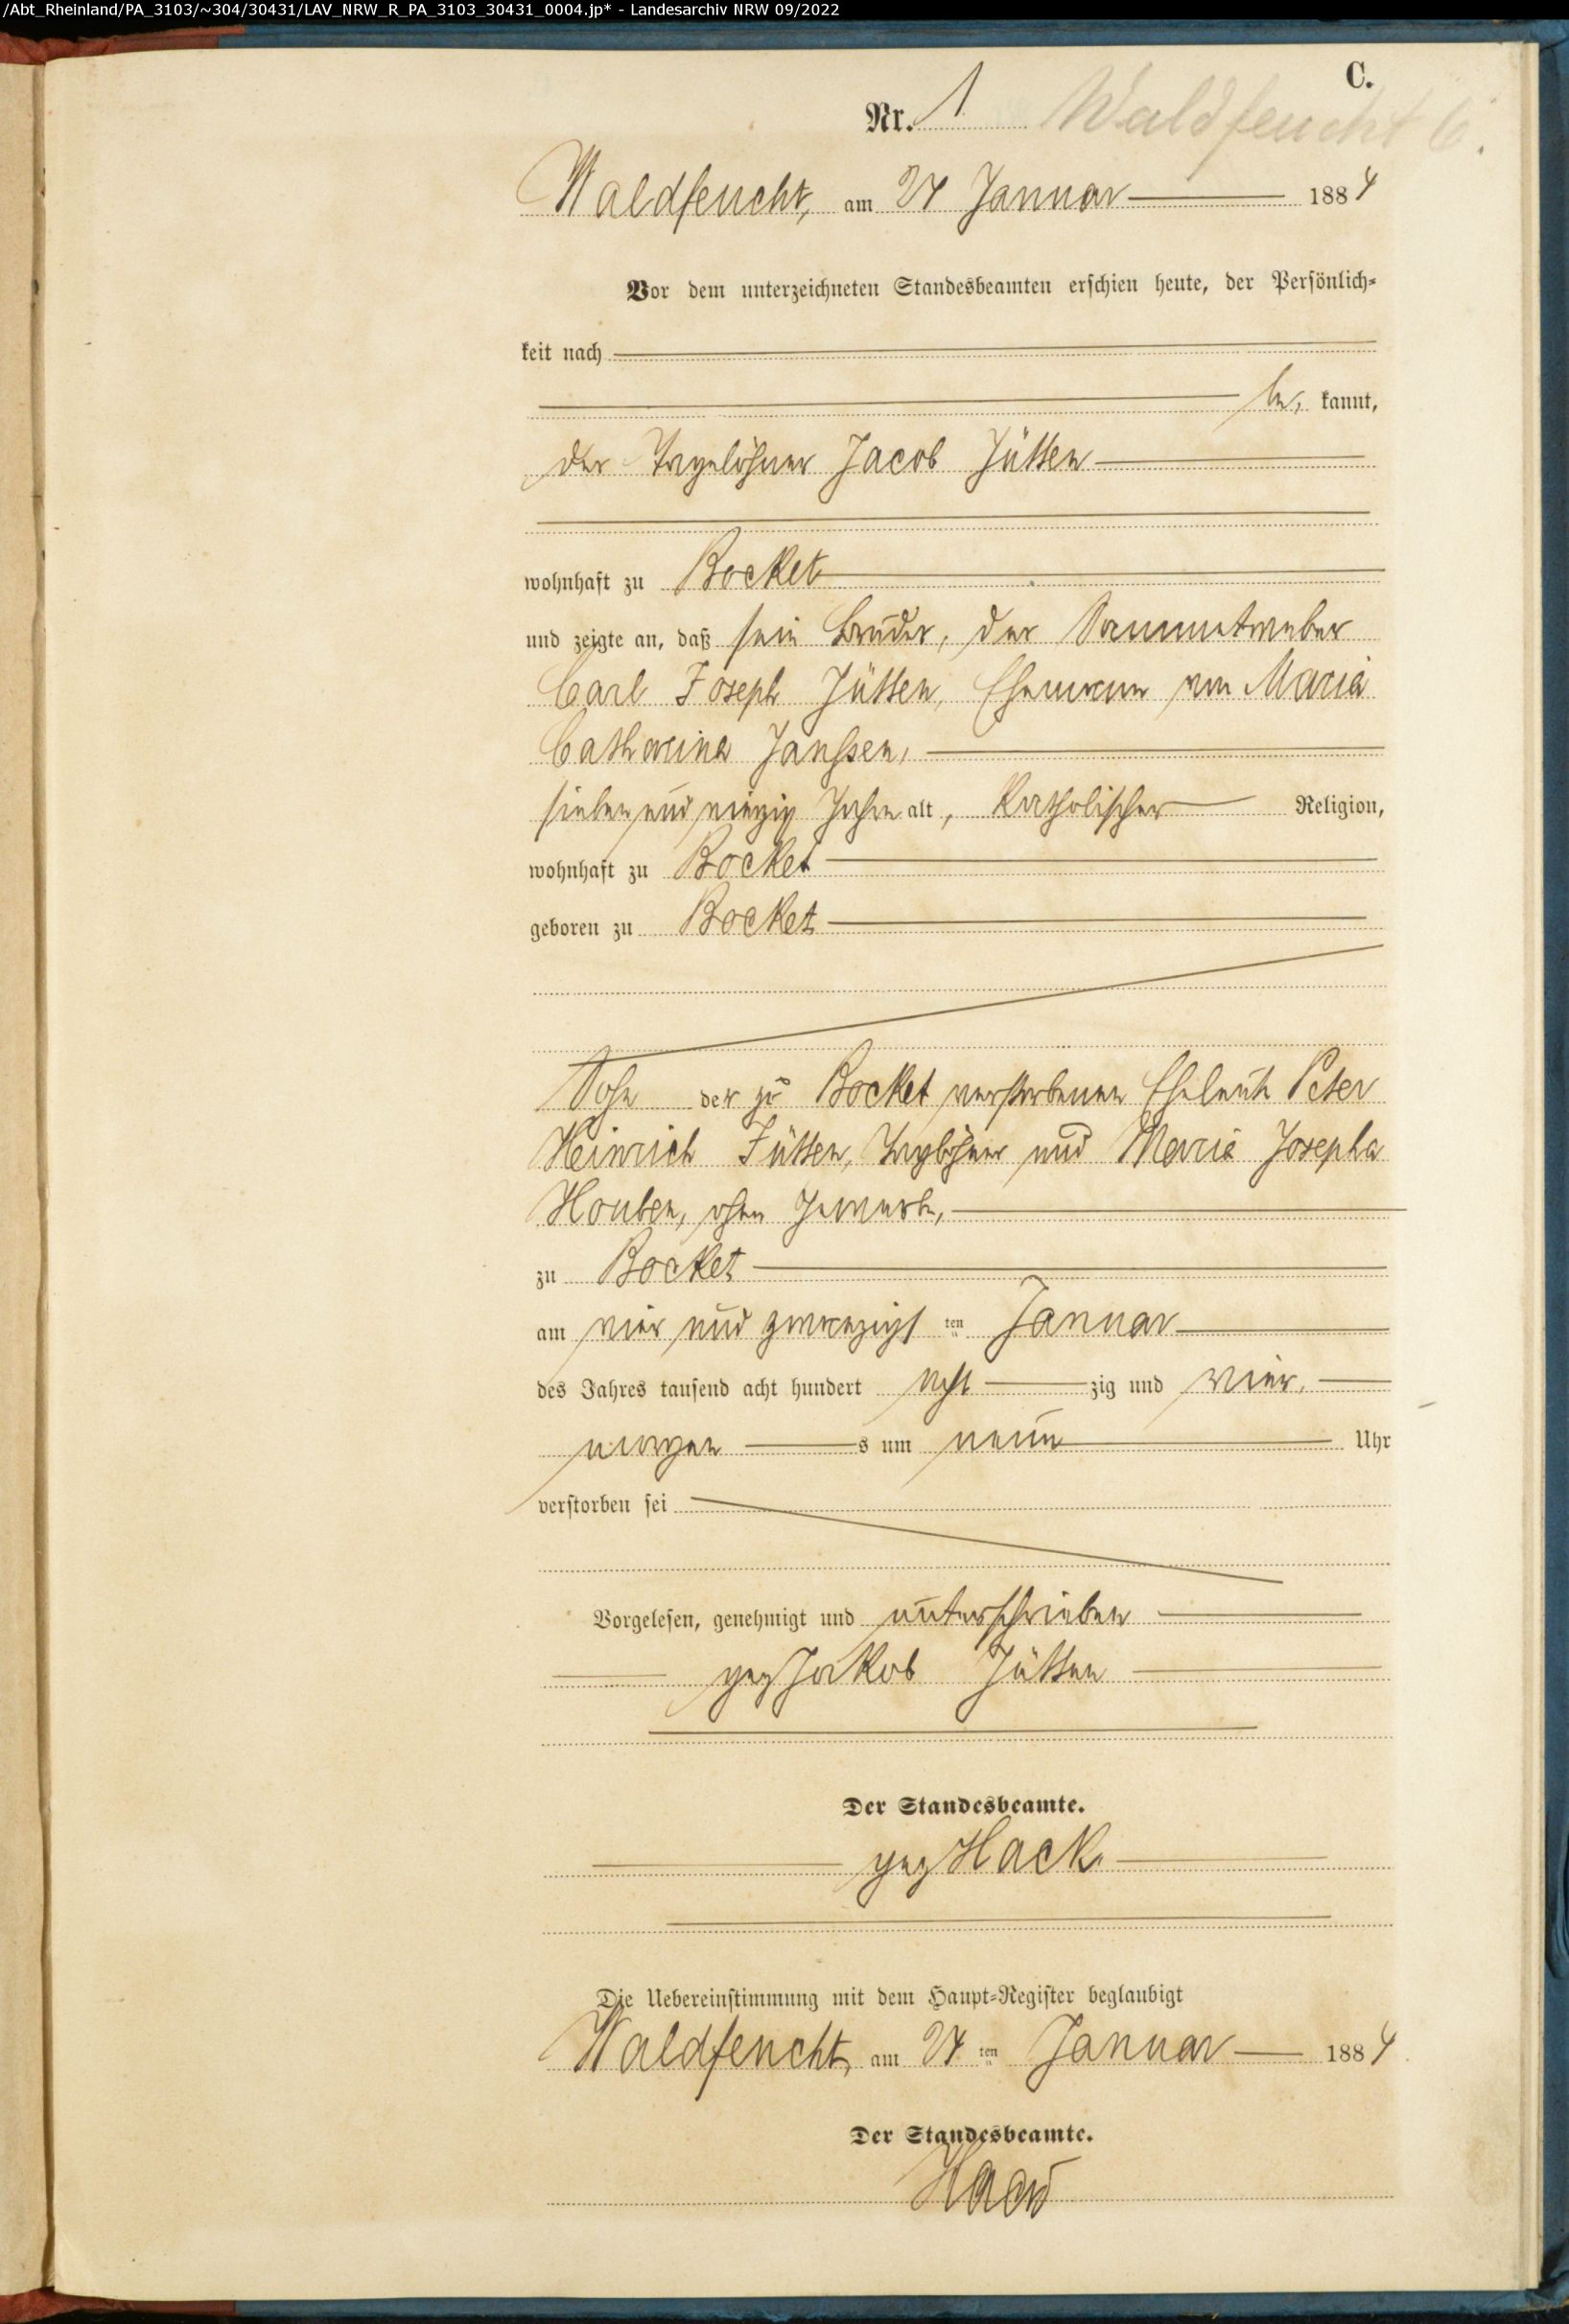 /Abt_Rheinland/PA_3103/~304/30431/LAV_NRW_R_PA_3103_30431_0004.jp* - Landesarchiv NRW 09/2022
C.
Nr. 1 Waldfeucht
Waldfeucht, am 24 Januar 1884
Vor dem unterzeichneten Standesbeamten erschien heute, der Persönlich-
keit nach
be, kannt,
der Tagelöhner Jacob Jütten
wohnhaft zu Bocket
und zeigte an, daß sein Bruder, der Sammetweber
Carl Joseph Jütten, Ehemann von Maria
Catharina Janßen,
sieben und vierzig Jahre alt, Katholischer Religion,
wohnhaft zu Bocket
geboren zu Bocket
Sohn der zu Bocket verstorbenen Eheleute Peter
Heinrich Jütten, Taglöhner und Maria Josepha
Houben, ohne Gewerbe,
zu Bocket
am vier und zwanzigsten Januar
des Jahres tausend acht hundert acht zig und vier,
morgen s um neun Uhr
verstorben sei
Vorgelesen, genehmigt und unterschrieben
gez Jakob Jütten
Der Standesbeamte.
gez Hack.
Die Uebereinstimmung mit dem Haupt-Register beglaubigt
Waldfeucht, am 24 ten Januar 1884
Der Standesbeamte.
Hack